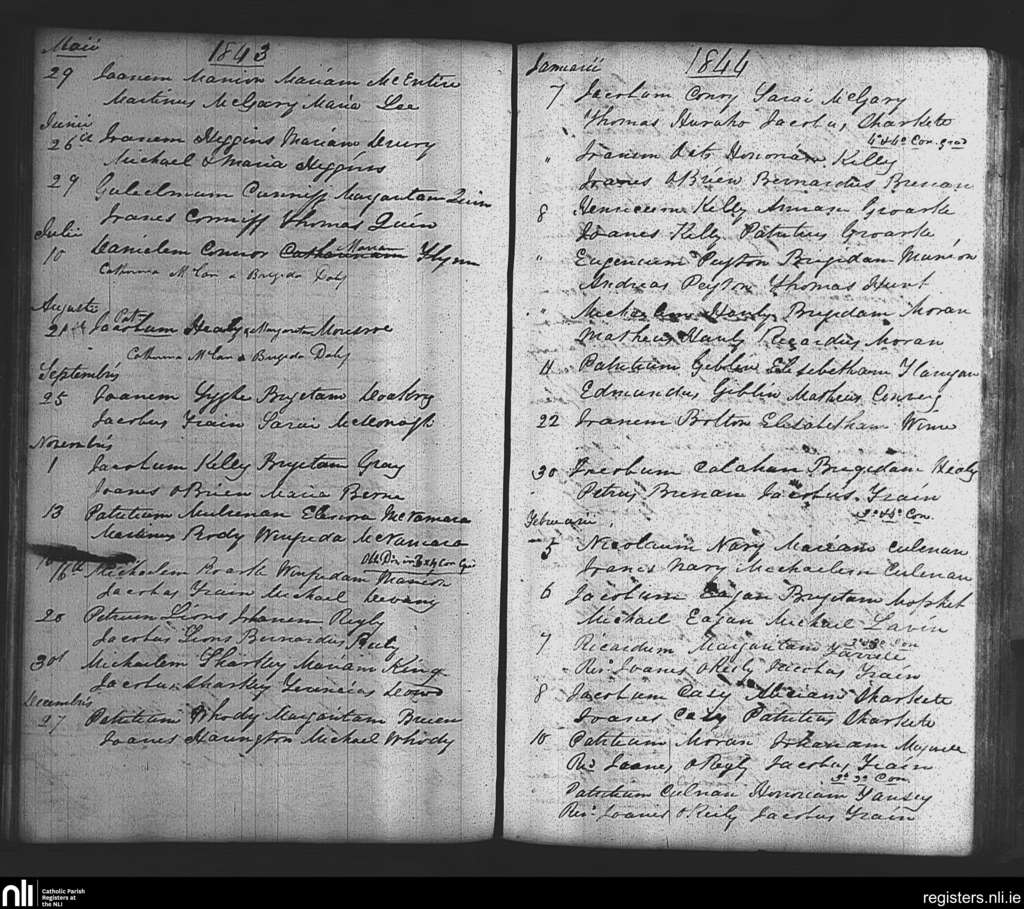 Maii 1843
29 Joanem Manion Mariam McEntire
Martinus McGary Maria Lee
Junii
26th Joanem Higgins Mariam Drury
Michael & Maria Higgins
29 Gulielmum Cunniff Margaritam Quin
Joanes Cunniff Thomas Quin
Julii
10 Danielem Connor Catharinam Mariam Flynn
Catherina McCan & Brigida Daly
Augusti
21st Jacobum Pat Healy & Margarita Monsroe
Catherina McCan & Brigida Daly
Septembris
25 Joanem Tyghe Brigetam
Jacobus Frain Sarai McDonagh
Novembris
1 Jacobum Kelly Brigetam Gray
Joanes OBrien Maria Beirne
13 Patritium Mulrenan Elenora McNamara
Martinus Brody Winifrida McNamara
Obt. Dis. in 3 & 4 Con.
16th Michaelem Roark Winifridam Manion
Jacobus Frain Michael Devany
20 Petrum Lions Johanem Regly
Jacobus Lions Bernardus Reily
30th Michaelem Sharkey Mariam King
Jacobus Sharkey Terencius
Decembris
27 Patritium Whody Margaritam Bruen
Joanes Harington Michael Whody
Januarii 1844
7 Jacobum Conry Sarai McGary
Thomas Jacobus Sharkete
4o & 4o Con. grad
" Joanem Honoriam Kelly
Joanes OBrien Bernardus Brenan
8 Henricum Kelly Annam Groarke
Joanes Kelly Patritius Groarke
" Eugenium Peyton Brigidam Manion
Andreas Peyton Thomas Hunt
" Michaelem Hanly Brigidam Moran
Matheus Hanly Ricardus Moran
11 Patritium Giblin Elisabetham Flangan
Edmundus Giblin Matheus
22 Joanem Bolton Elisabetham
30 Jacobum Calahan Brigidam Healy
Petrus Brenan Jacobus Frain
Februarii 3o & 4o Con.
5 Nicolaum Nary Mariam Culenan
Joanes Nary Michaelem Culenan
6 Jacobum Eagan Brigetam
Michael Eagan Michael Lavin
3o & 3o Con
7 Ricardum Margaritam
Rev. Joanes OReily Jacobus Frain
8 Jacobum Casy Mariam Sharkete
Joanes Casy Patritius Sharkete
10 Patritium Moran Johanam
Rev. Joanes OReyly Jacobus Frain
3o 3o Con
Patritium Culnan Honoriam Tansey
Rev. Joanes OReily Jacobus Frain
nli Catholic Parish
Registers at
the NLI
registers.nli.ie